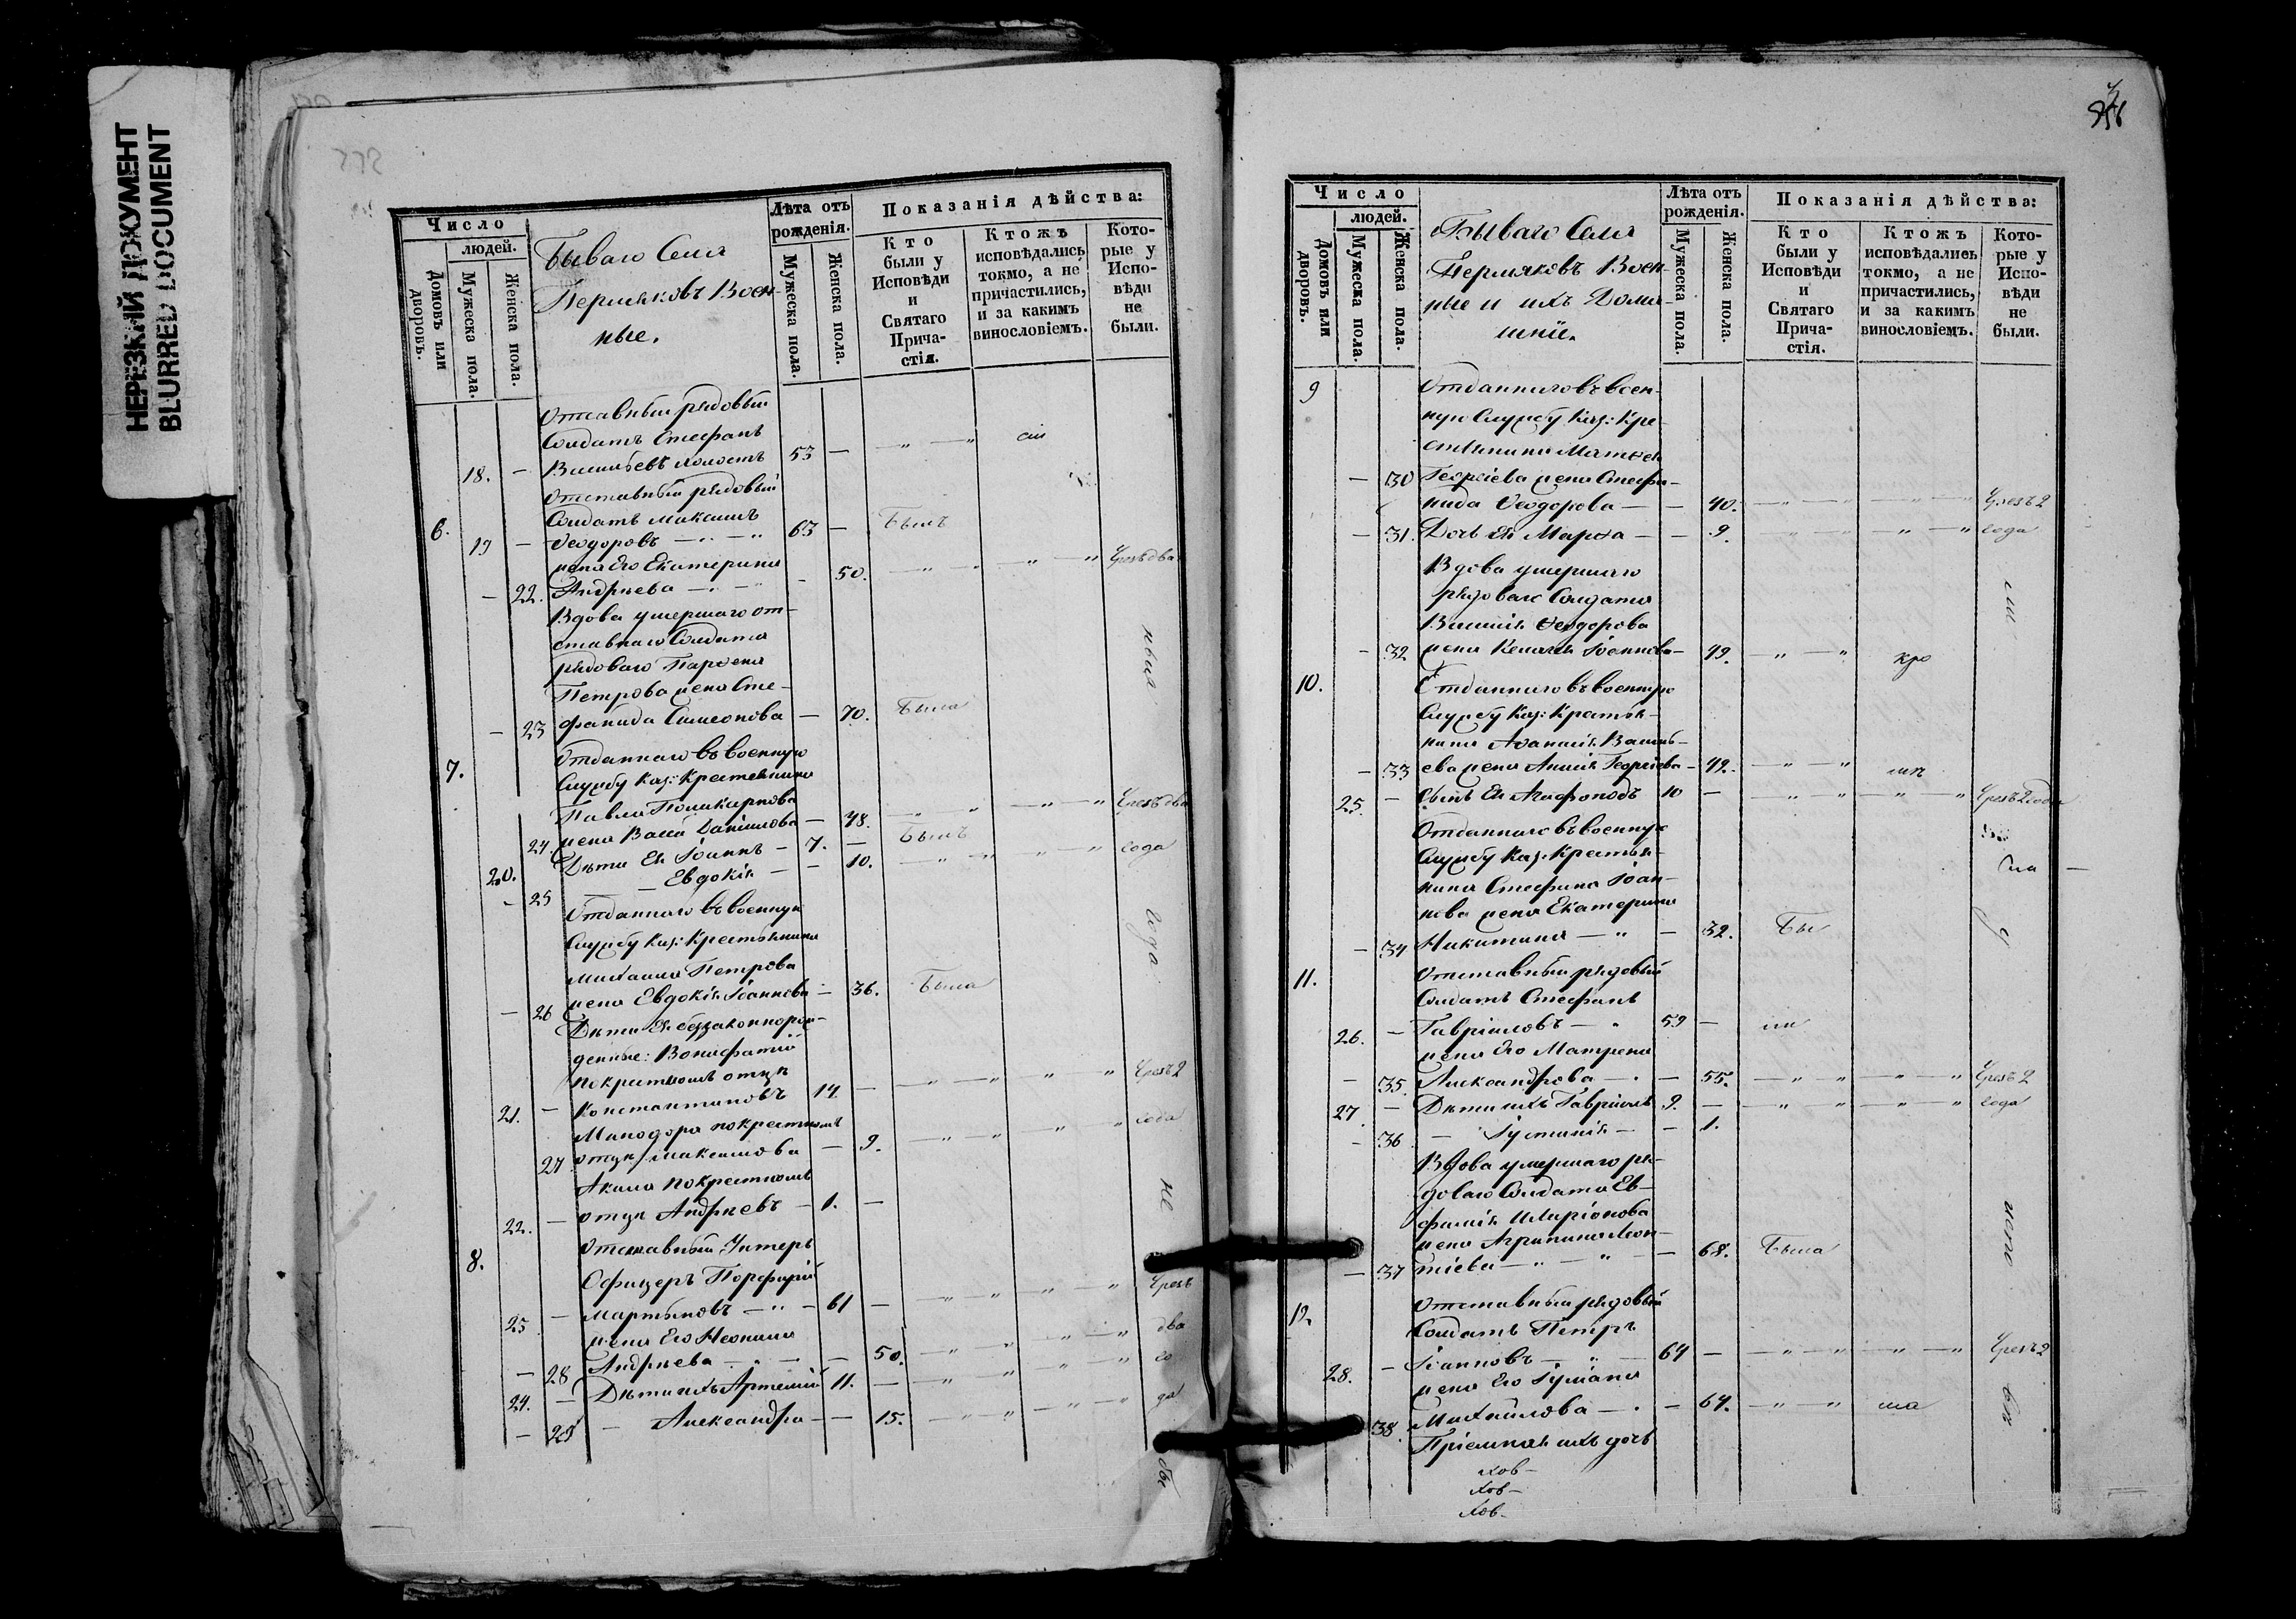 НЕРЕЗКИЙ ДОКУМЕНТ
BLURRED DOCUMENT
Число
людей.
Домовъ или дворовъ.
Мужеска пола.
Женска пола.
Бываго Села
Пермяковъ Воен-
ные.
Лѣта отъ рожденія.
Мужеска пола.
Женска пола.
Показанія дѣйства:
Кто были у Исповѣди и Святаго Прича-стія.
Ктожъ исповѣдались токмо, а не причастились, и за какимъ винословіемъ.
Кото-рые у Испо-вѣди не были.
Отставный рядовый
Солдатъ Стефанъ
18. — Васильевъ холостъ 53 —
Отставный рядовый
6. Солдатъ Максимъ
19 — Ѳеодоровъ 63 — Былъ
жена Его Екатерина
— 22. Андреева — 50. Чрезъ два
Вдова умершаго от-
ставнаго Солдата
рядоваго Парѳена
Петрова жена Сте-
— 23 фанида Симеонова — 70. Была
7. Отданнаго въ военную
Службу Каз: Крестьянина
Павла Поликарпова
24. жена Васса Даніилова — 48. Чрезъ два
20. Дѣти Ея Іоаннъ — 7. — Былъ
— 25 — Евдокія — — 10. года
Отданнаго въ военную
Службу Каз: Крестьянина
Михаила Петрова
— 26 жена Евдокія Іоаннова — 36. Была
Дѣти Ея беззаконнорож-
денные: Вонифатій
по крестномъ отцѣ
21. — Константиновъ 14 — Чрезъ 2
Минодора по крестномъ
27 отцѣ Максимова — 9. года
Акила по крестномъ
22. — отцѣ Андреевъ — 1. —
8. Отставный Унтеръ
Офицеръ Порфирій
23 — Мартыновъ — 61 — Чрезъ
жена Его Неонила
— 28 Андреева — 50. два
24. — Дѣти ихъ Артемій 11. — го
— 29 — Александра — — 15. да
Число
людей.
Домовъ или дворовъ.
Мужеска пола.
Женска пола.
Бываго Села
Пермяковъ Воен-
ные и ихъ Дома-
шніи.
Лѣта отъ рожденія.
Мужеска пола.
Женска пола.
Показанія дѣйства:
Кто были у Исповѣди и Святаго Прича-стія.
Ктожъ исповѣдались токмо, а не причастились, и за какимъ винословіемъ.
Кото-рые у Испо-вѣди не были.
9 Отданнаго въ воен-
ную Службу Каз: Кре-
стьянина Матѳея
— 30 Георгіева жена Стефа-
нида Ѳеодорова — — 40. Чрезъ 2
— 31. Дочь Ея Марѳа — — 9. года
Вдова умершаго
рядоваго Солдата
Василія Ѳеодорова
— 32 жена Ксенія Іоаннова — 49.
10. Отданнаго въ военную
Службу Каз: Крестья-
нина Аѳанасія Василь-
— 33 ева жена Анисія Георгіева — 42.
25. — Сынъ Ея Агафоподъ 10 — Чрезъ 2 года
Отданнаго въ военную
Службу Каз: Крестья-
нина Стефана Іоан-
нова жена Екатерина
— 34 Никитина — — 32. Бы
11. Отставный рядовый
Солдатъ Стефанъ
26. — Гавріиловъ — 59 —
жена Его Матрена
— 35. Александрова — — 55. Чрезъ 2
27 — Дѣти ихъ Гавріилъ 9. — года
— 36 — Іустинія — — 1.
Вдова умершаго ря-
доваго Солдата Ев-
фимія Иларіонова
жена Агрипина Леон-
— 37 тіева — — 68. Была
12 Отставный рядовый
Солдатъ Петръ
28. — Іоанновъ — 64 — Чрезъ 2
жена Его Іуліана
38. Михайлова — — 64.
Пріемная ихъ дочь